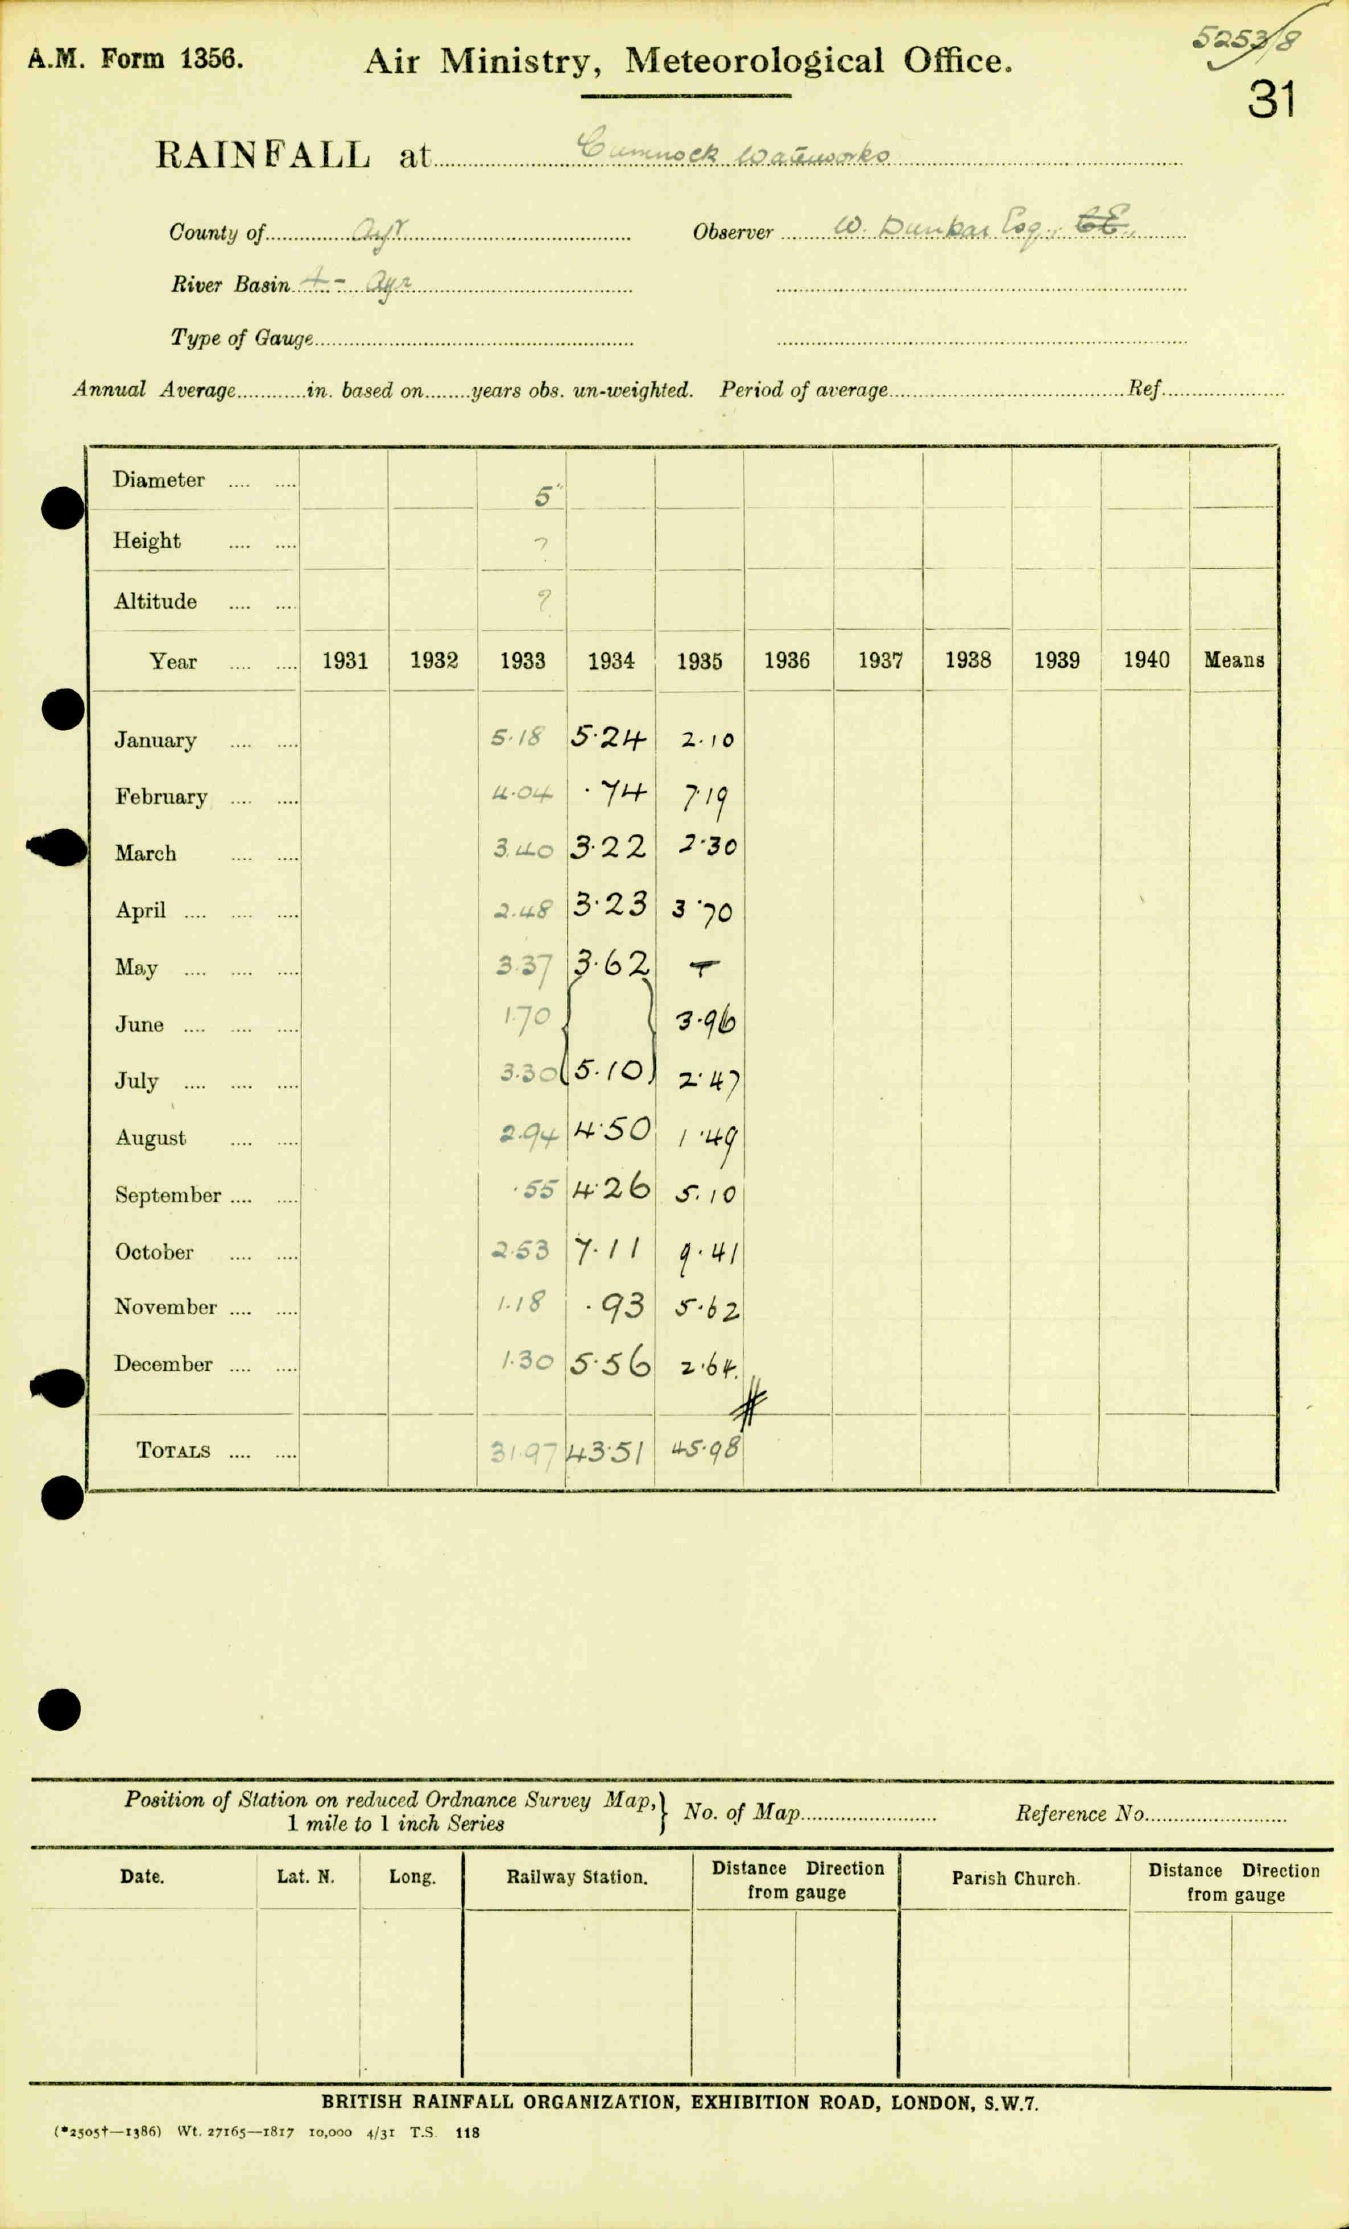 5253/8
A.M. Form 1356. Air Ministry, Meteorological Office.
31
RAINFALL at Cumnock Waterworks
County of Ayr Observer W. Dunbar Esq., C.E.,
River Basin 4 - Ayr
Type of Gauge
Annual Average in. based on years obs. un-weighted. Period of average Ref.
Diameter 5"
Height ?
Altitude ?
Year 1931 1932 1933 1934 1935 1936 1937 1938 1939 1940 Means
January 5.18 5.24 2.10
February 4.04 .74 7.19
March 3.40 3.22 2.30
April 2.48 3.23 3.70
May 3.37 3.62 T
June 1.70 3.96
July 3.30 5.10 2.47
August 2.94 4.50 1.49
September .55 4.26 5.10
October 2.53 7.11 9.41
November 1.18 .93 5.62
December 1.30 5.56 2.64.
TOTALS 31.97 43.51 45.98
Position of Station on reduced Ordnance Survey Map,
1 mile to 1 inch Series } No. of Map Reference No.
Date. Lat. N. Long. Railway Station. Distance Direction from gauge Parish Church. Distance Direction from gauge
BRITISH RAINFALL ORGANIZATION, EXHIBITION ROAD, LONDON, S.W.7.
(*2505†—1386) Wt. 27165—1817 10,000 4/31 T.S. 118